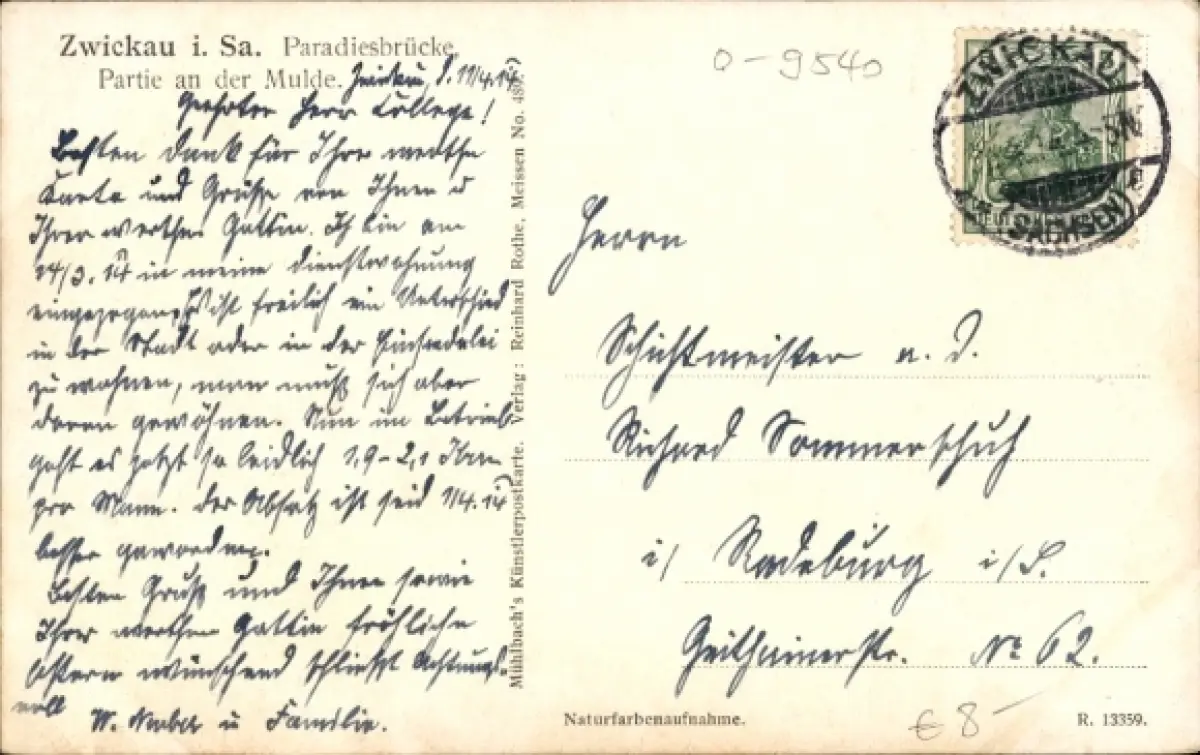 Zwickau i. Sa. Paradiesbrücke,
Partie an der Mulde. Zwickau, d. 11/4.14.
Geehrter Herr College!
Besten Dank für Ihre werthe
Karte und Grüße von Ihnen u
Ihrer werthen Gattin. Ich bin am
24/3. 14 in meine Dienstwohnung
eingezogen. Es ist freilich ein Unterschied
in der Stadt oder in der Einsiedelei
zu wohnen, man muß sich aber
daran gewöhnen. Nun im Betrieb
geht es jetzt so leidlich 1,9–2,1
pro Mann. Der Absatz ist seid 1/4.14
besser geworden.
Besten Gruß und Ihnen sowie
Ihrer werthen Gattin fröhliche
Ostern wünschend schließt Achtungs-
voll
W. u Familie.
Mühlbach's Künstlerpostkarte. Verlag: Reinhard Rothe, Meissen No. 489.
0-9540
ZWICKAU
(SACHSEN)
Herrn
Schichtmeister a. D.
Richard Sommerschuh
i/ Radeburg i/S.
Geithainerstr. No 62.
Naturfarbenaufnahme.
€ 8-
R. 13359.